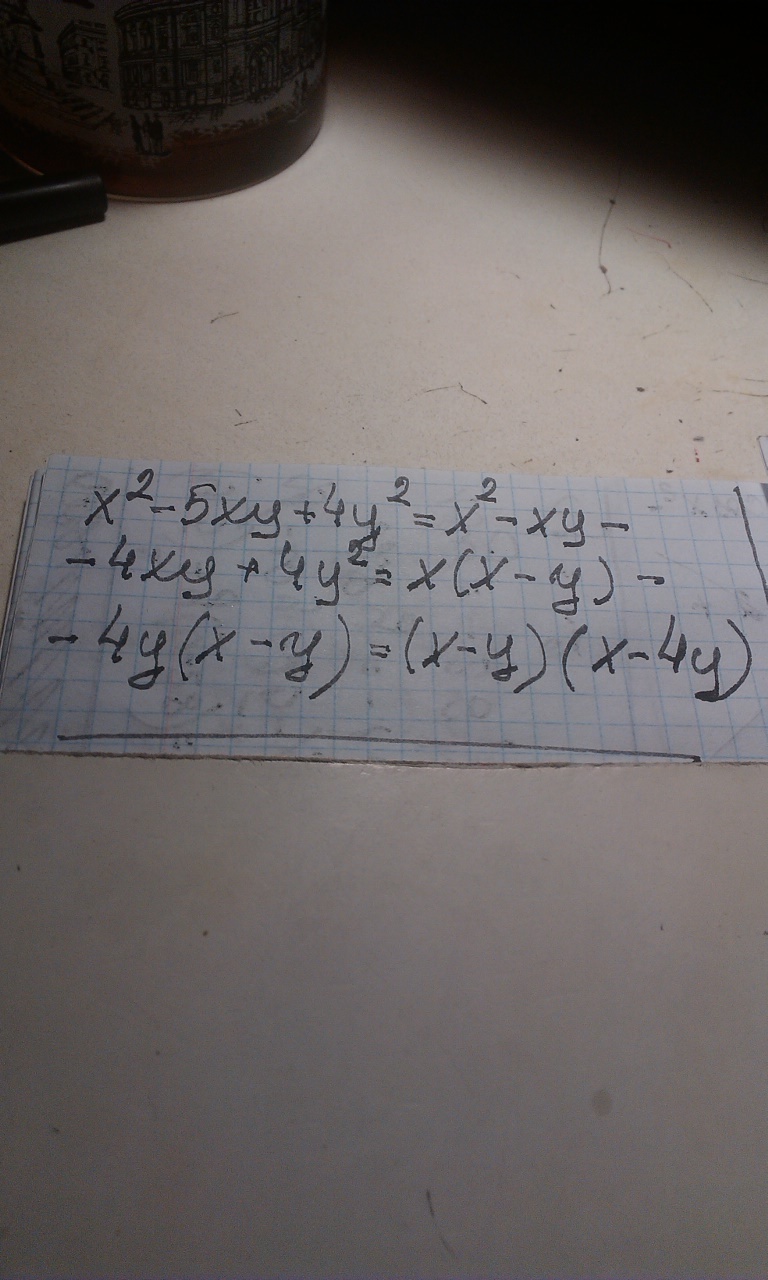 x²-5xy+4y²=x²-xy-
-4xy+4y²=x(x-y)-
-4y(x-y)=(x-y)(x-4y)